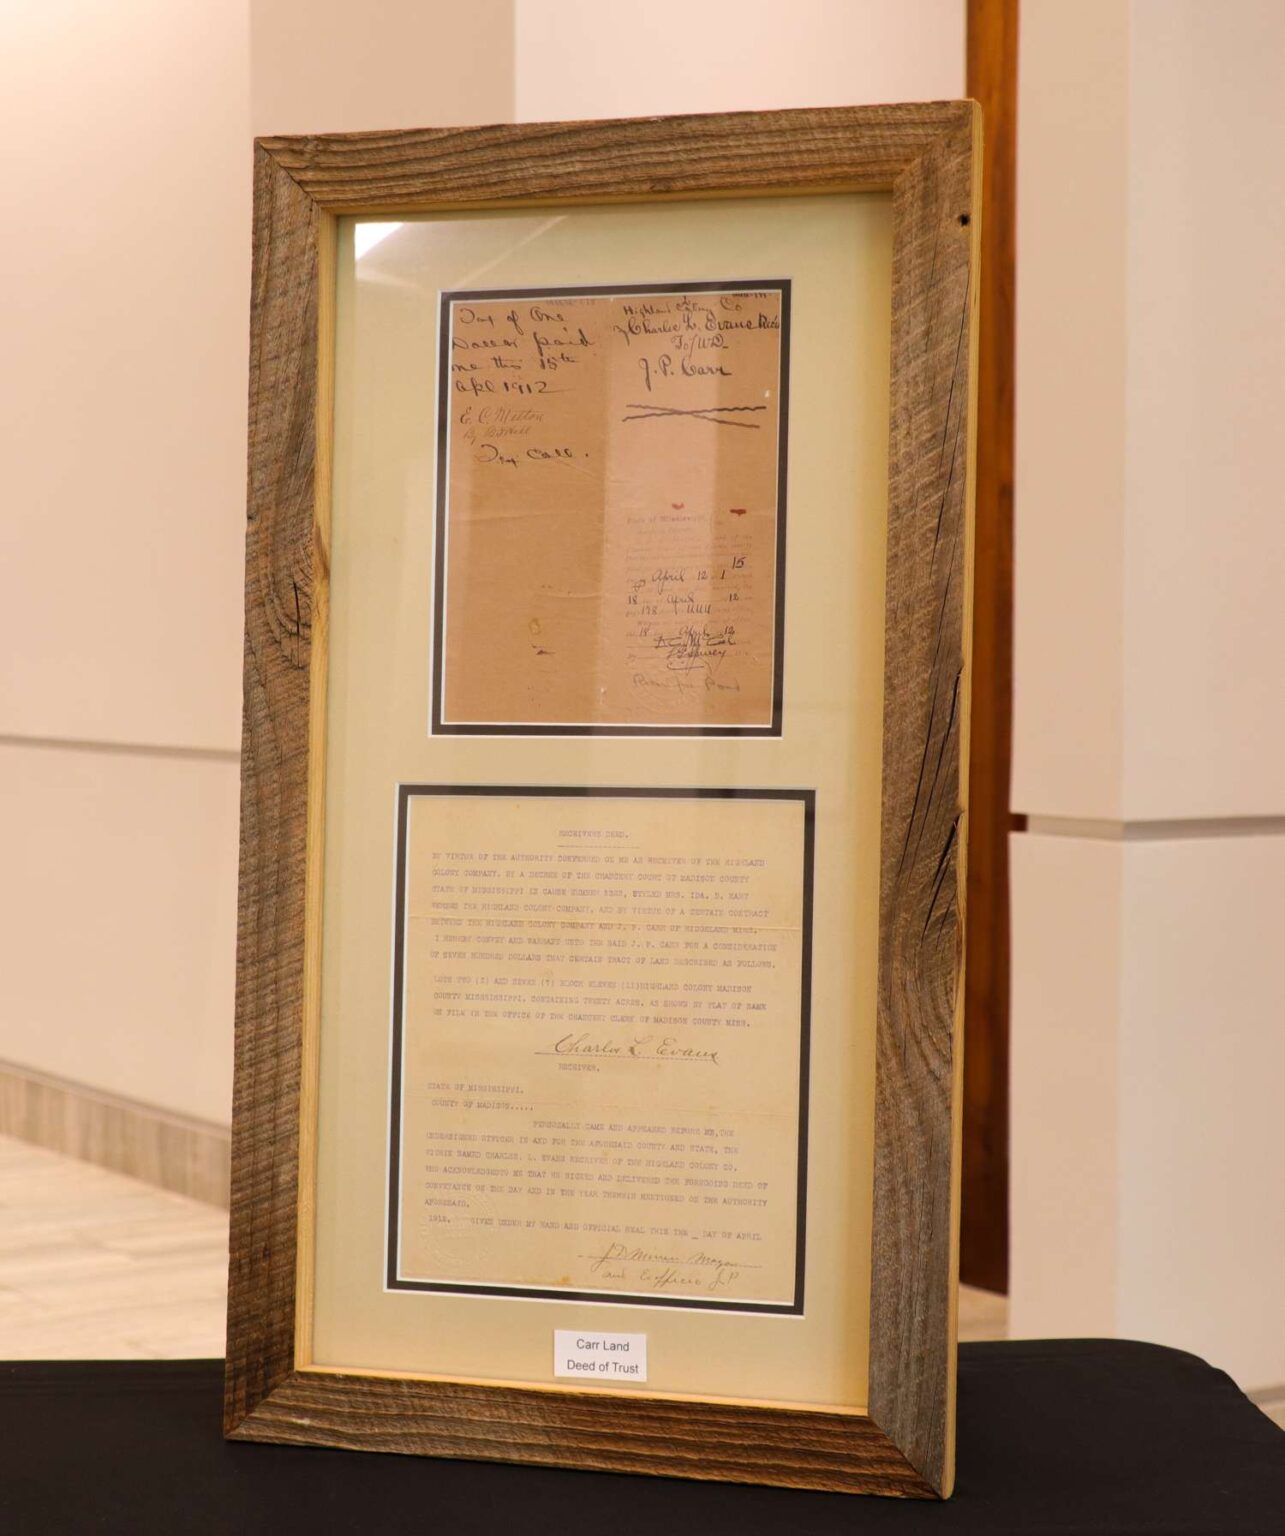 Tax of One
Dollar paid
me this 15th
Apl 1912
E. C. Melton
By
Tax Coll.
Highland Colony Co
Charlie L. Evans
To/WD
J. P. Carr
State of Mississippi
15
April 12 1
18 April 12
178 UUU
18 April 12
RECEIVERS DEED.
BY VIRTUE OF THE AUTHORITY CONFERRED ON ME AS RECEIVER OF THE HIGHLAND
COLONY COMPANY. BY A DECREE OF THE CHANCERY COURT OF MADISON COUNTY
STATE OF MISSISSIPPI IN CAUSE NUMBER STYLED MRS. IDA. B. HART
VERSUS THE HIGHLAND COLONY COMPANY, AND BY VIRTUE OF A CERTAIN CONTRACT
BETWEEN THE HIGHLAND COLONY COMPANY AND J. P. CARR OF RIDGELAND MISS.
I HEREBY CONVEY AND WARRANT UNTO THE SAID J. P. CARR FOR A CONSIDERATION
OF SEVEN HUNDRED DOLLARS THAT CERTAIN TRACT OF LAND DESCRIBED AS FOLLOWS.
LOTS TWO (2) AND SEVEN (7) BLOCK ELEVEN (11) HIGHLAND COLONY MADISON
COUNTY MISSISSIPPI. CONTAINING TWENTY ACRES. AS SHOWN BY PLAT OF SAME
ON FILE IN THE OFFICE OF THE CHANCERY CLERK OF MADISON COUNTY MISS.
Charles L. Evans
RECEIVER.
STATE OF MISSISSIPPI.
COUNTY OF MADISON.....
PERSONALLY CAME AND APPEARED BEFORE ME, THE
UNDERSIGNED OFFICER IN AND FOR THE AFORESAID COUNTY AND STATE, THE
WITHIN NAMED CHARLES. L. EVANS RECEIVER OF THE HIGHLAND COLONY CO.
WHO ACKNOWLEDGED TO ME THAT HE SIGNED AND DELIVERED THE FOREGOING DEED OF
CONVEYANCE ON THE DAY AND IN THE YEAR THEREIN MENTIONED ON THE AUTHORITY
AFORESAID.
1912. GIVEN UNDER MY HAND AND OFFICIAL SEAL THIS THE _ DAY OF APRIL
Mayor
and Exofficio J.P
Carr Land
Deed of Trust